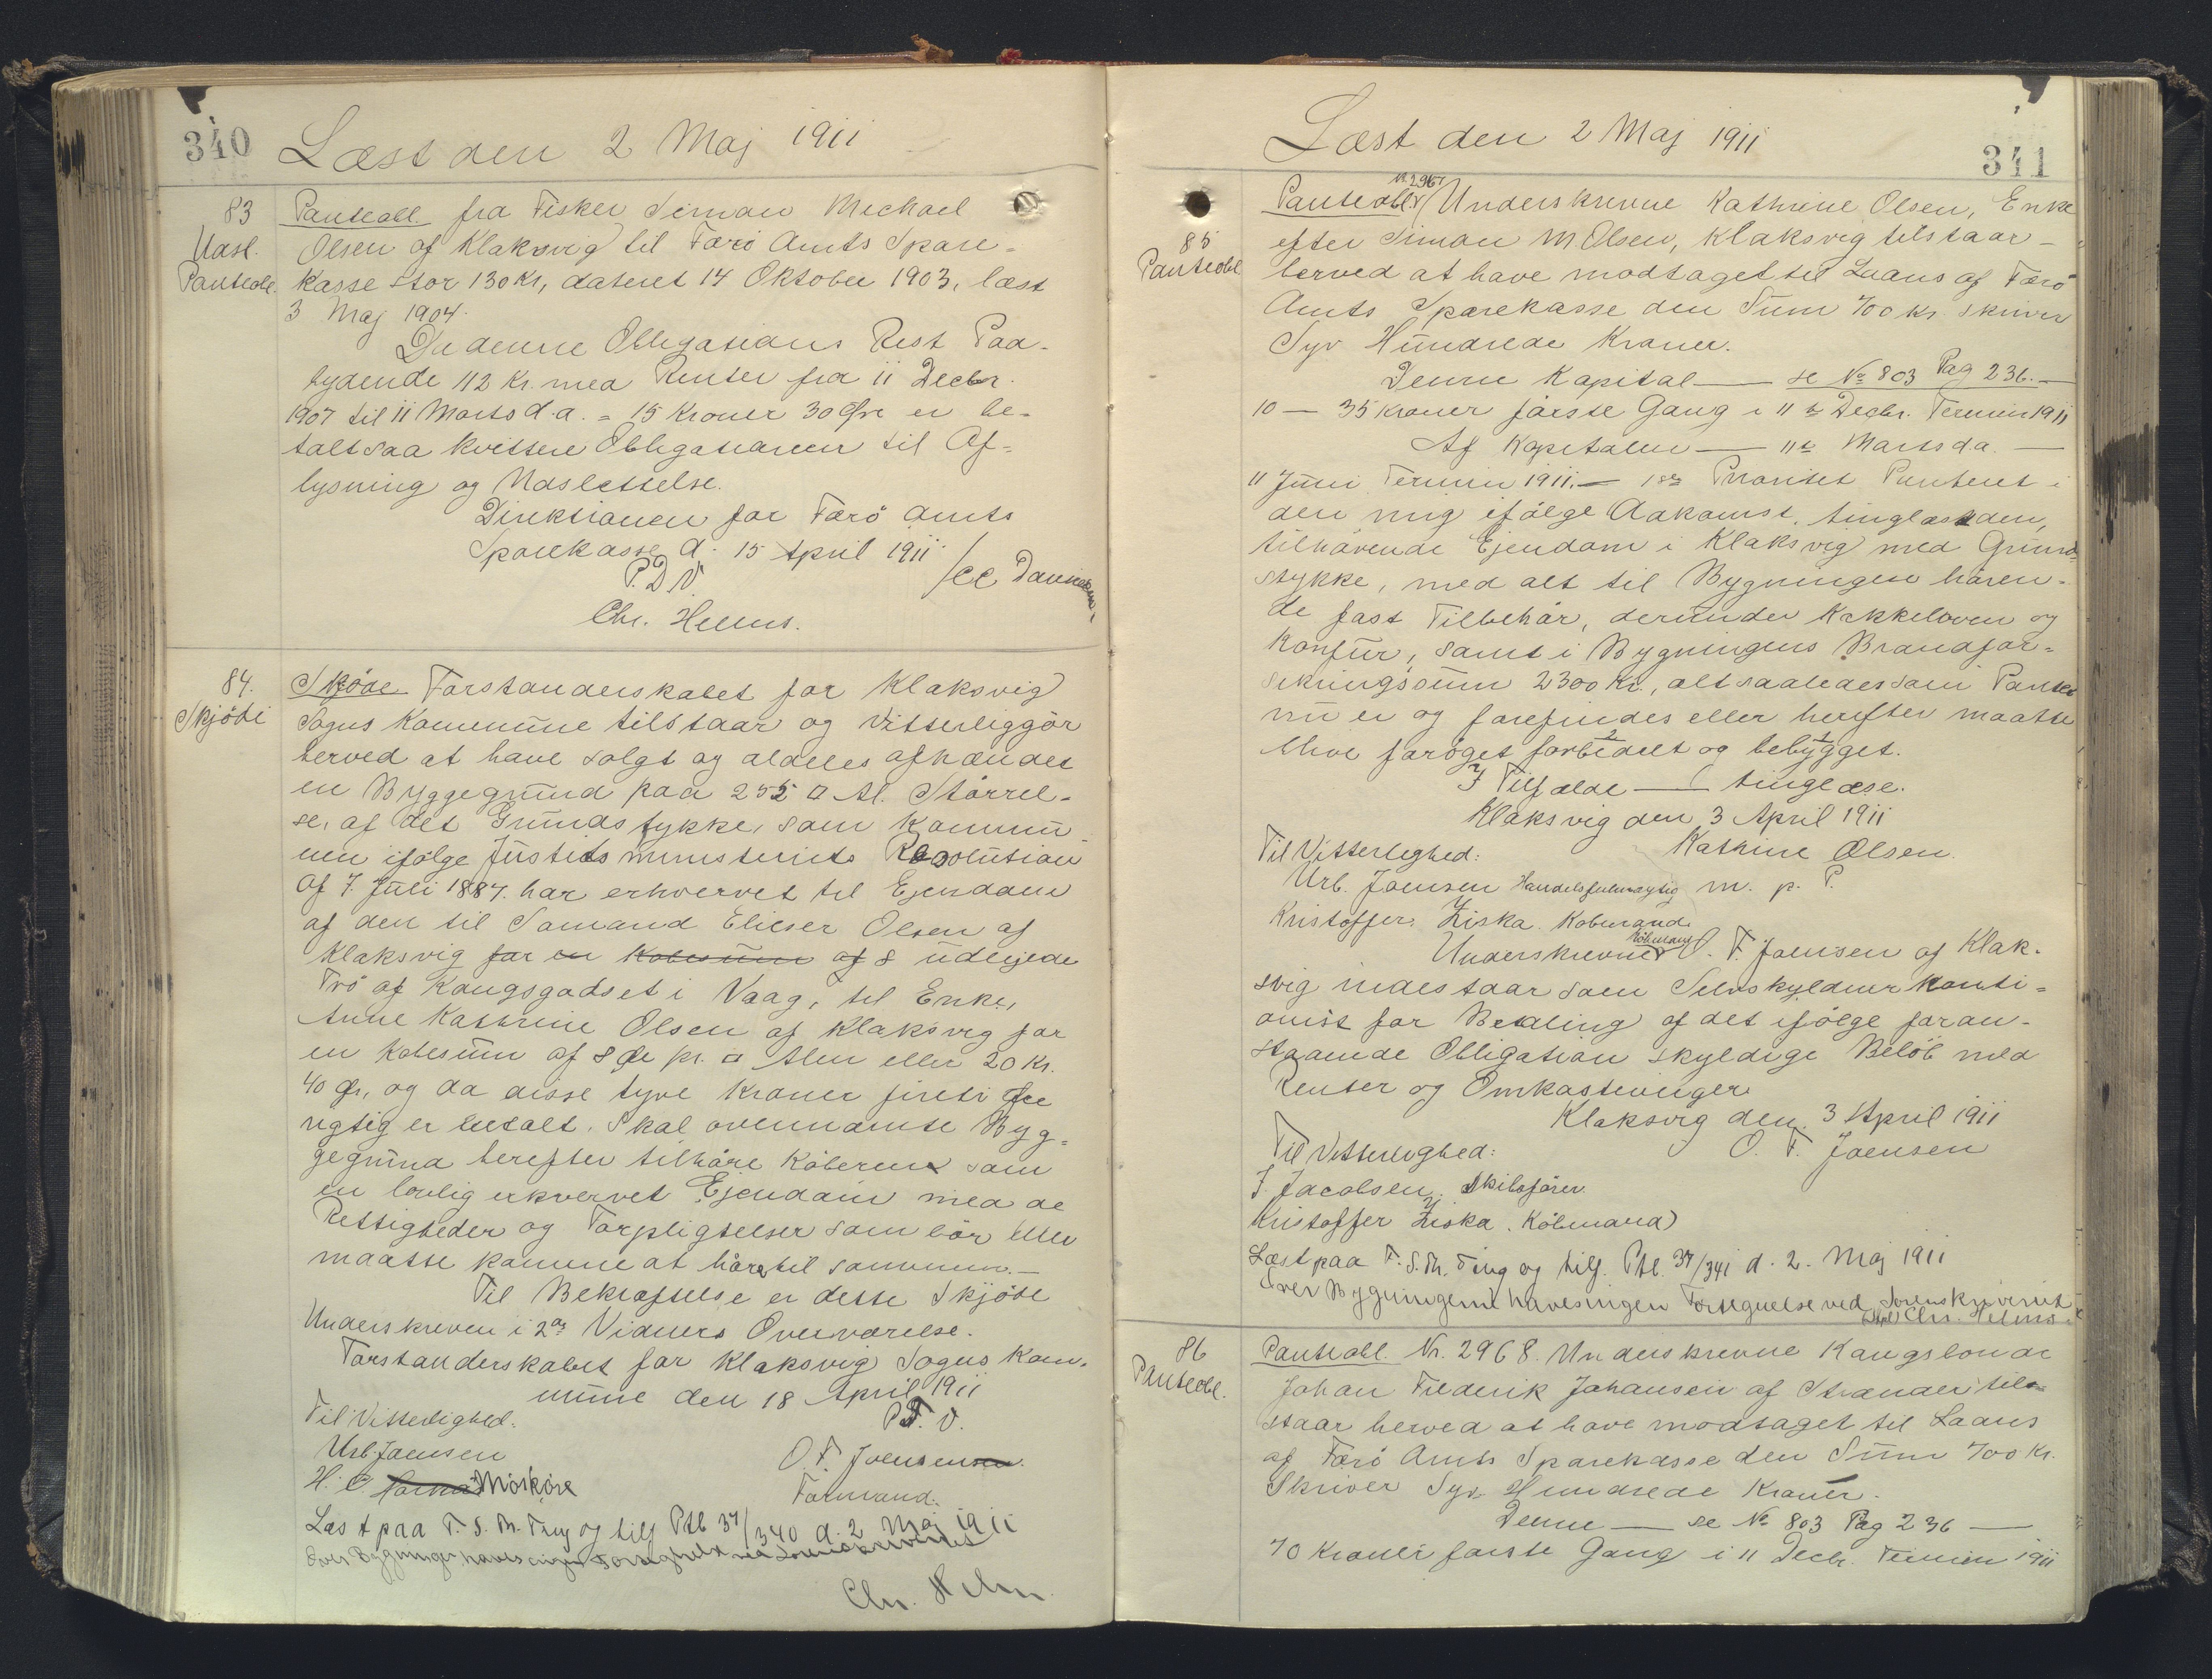 340
Læst den 2 Maj 1911
83
Udsl.
Panteobl.
Panteobl fra Fisker Simon Michael
Olsen af Klaksvig til Færö Amts Spare-
kasse stor 130 Kr, dateret 14 Oktober 1903, læst
3 Maj 1904.
Da denne Obligations Rest Paa-
lydende 112 Kr. med Renter fra 11 Decbr.
1907 til 11 Marts d.a. = 15 Kroner 30 Øre er be-
talt saa kvittere Obligationen til Af-
lysning og Udslettelse.
Direktionen for Færö Amts
Sparekasse d. 15 April 1911
P.D.V.
Chr. Helms.
84.
Skjöde
Skøde Forstanderskabet for Klaksvig
Sogns Kommune tilstaar og Vitterliggör
herved at have solgt og aldeles afhændet
en Byggegrund paa 255 □ Al. Störrel-
se, af det Grundstykke, som Kommu
nen ifölge Justitsministeriets Resolution
af 7. Juli 1887. har erhvervet til Ejendom
af den til Somand Elieser Olsen af
Klaksvig for en Kobesum af 8 udlejede
Trö af Kongsgodset i Vaag, til Enke,
Anne Kathrine Olsen af Klaksvig for
en Kobesum af 8 Øre pr. □ Alen eller 20 Kr.
40 Ør, og da disse tyve Kroner firti Øre
rigtig er betalt. Skal ovennævnte Byg-
gegrund herefter tilhöre Köberen som
en lovlig erhvervet Ejendom med de
Rettigheder og Forpligtelser som bör eller
maatte komme at höre til sammen.—
Til Bekræftelse er dette Skjöde
Underskreven i 2de Vidners Overværelse.
Forstanderskabet for Klaksvig Sogns Kom-
mune den 18 April 1911
Til Vitterlighed:
P.F.V.
Urb. Joensen
O.F. Joensen
H. C. Mörköre
Formand.
Læst paa F. S. Th. Ting og tilf Ptb 37/340 d. 2 Maj 1911
Over Bygningen haves ingen Fortegnelse ved Sorenskriveriet
Chr. Helms
Læst den 2 Maj 1911
341
85
Panteobl
Panteobl. Nr. 2967 Underskrevne Kathrine Olsen, Enke
efter Simon M Olsen, Klaksvig tilstaar
herved at have modtaget til Laans af Færö
Amts Sparekasse den Sum 700 Kr. skriver
Syv Hundrede Kroner.
Denne Kapital — se No 803 Pag 236.—
10 — 35 Kroner förste Gang i 11te Decbr. Termin 1911
Af Kapitalen — 11te Marts d.a. —
11 Juni Termin 1911.— 1ste Prioritet Panteret i
den mig ifölge Adkomst, tinglæst den,
tilhörende Ejendom i Klaksvig med Grund-
stykke, med alt til Bygningen hören-
de fast Tilbehör, derunder Kakkeloven og
Komfur, samt i Bygningens Brandfor-
sikringssum 2300 Kr., alt saaledes som Pantet
nu er og forefindes eller herefter maatte
blive foröget forbedret og bebygget.
I Tilfælde — tinglæse.
Klaksvig den 3 April 1911
Til Vitterlighed:
Kathrine Olsen
Urb. Joensen Handelsfuldmægtig
m. p. P.
Kristoffer Ziska Kobmand
Underskrevne Köbmand O. F. Joensen af Klak-
svig indestaar som Selvskyldner Kauti-
onist for Betaling af det ifölge foran-
staaende Obligation skyldige Belöb med
Renter og Omkostninger
Klaksvig den 3 April 1911
Til Vitterlighed:
O. F. Joensen
J. Jacobsen, Skibsförer
Kristoffer Ziska. Köbmand
Læst paa F. S. Th. Ting og tilf. Ptb. 37/341 d. 2. Maj 1911
Over Bygningerne haves ingen Fortegnelse ved Sorenskriveriet
Chr. Helms
86
Panteobl.
Panteobl. Nr. 2968. Underskrevne Kongsbonde
Johan Frederik Johansen af Strander til-
staar herved at have modtaget til Laans
af Færö Amts Sparekasse den Sum 700 Kr.
Skriver Syv Hundrede Kroner.
Denne — se No 803 Pag 236 —
70 Kroner förste Gang i 11 Decbr. Termin 1911